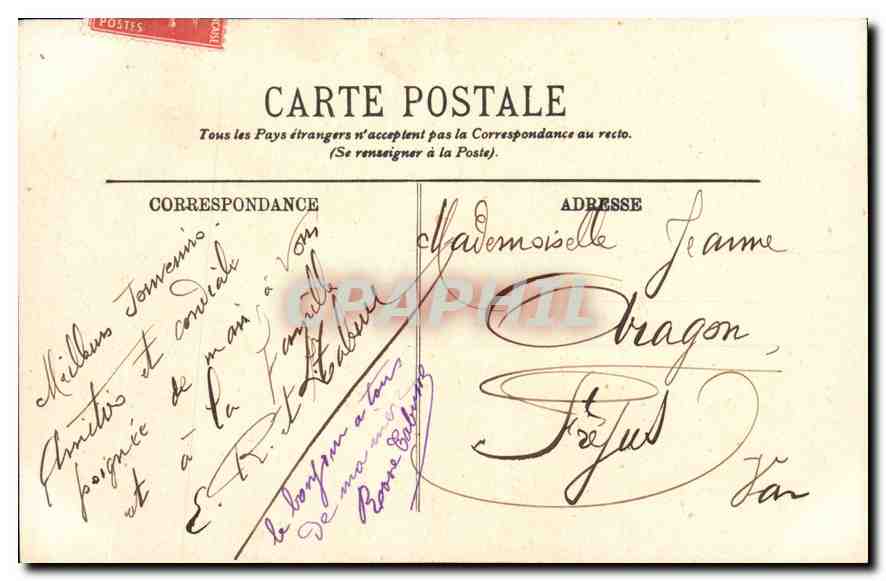 POSTES
CARTE POSTALE
Tous les Pays étrangers n'acceptent pas la Correspondance au recto.
(Se renseigner à la Poste).
CORRESPONDANCE
Meilleurs Souvenirs.
Amitiés et cordiale
poignée de main à Vous
et à la famille
E. R. et
le bonjour a tous
de ma
Rose
ADRESSE
Mademoiselle Jeanne
Aragon,
Fréjus
Var
CPAPHIL